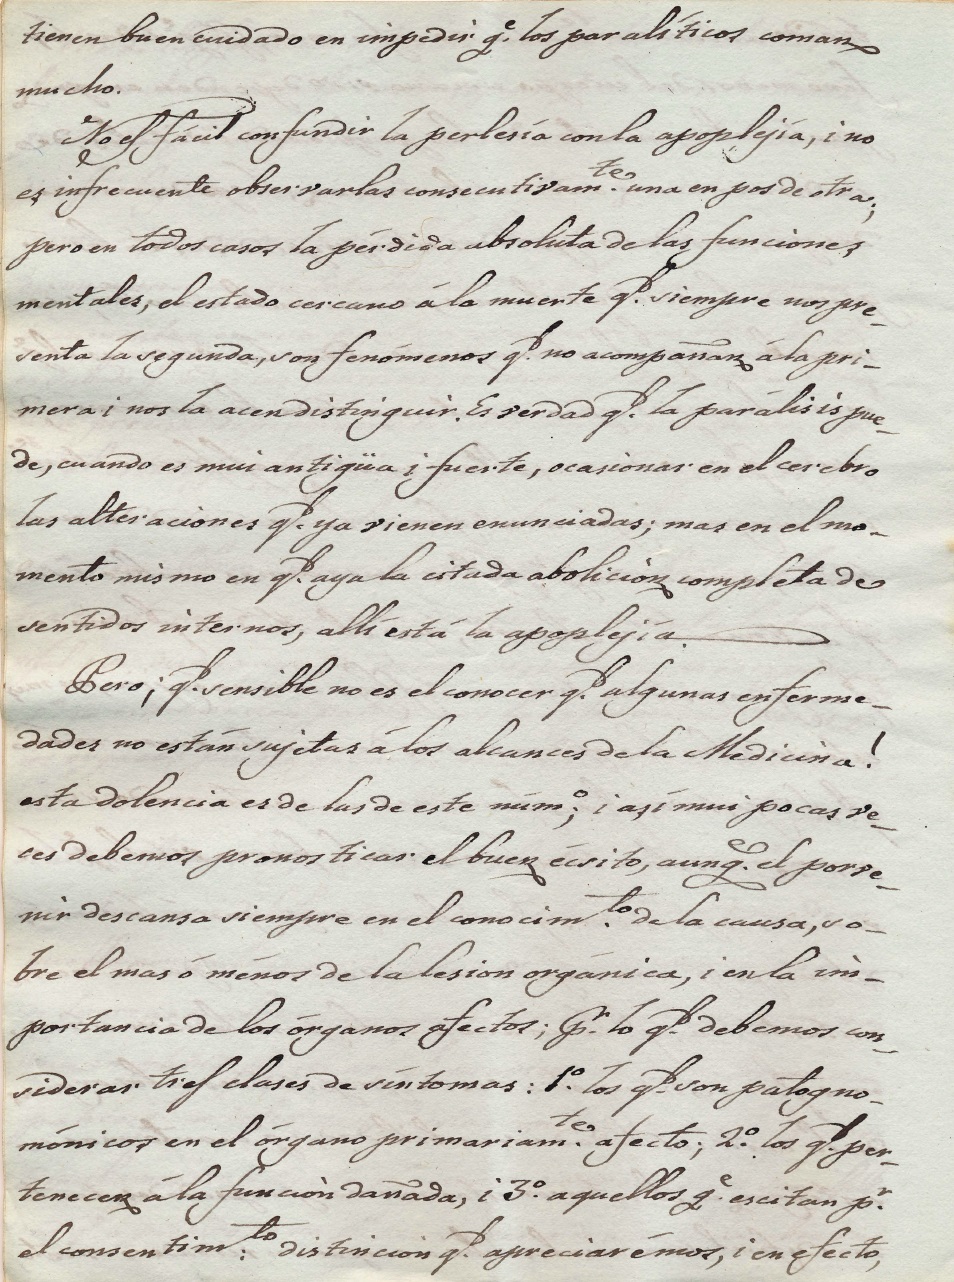 tienen buen cuidado en impedir q.e los paralíticos coman
mucho.
No es fácil confundir la perlesía con la apoplejía, i no
es infrecuente observarlas consecutivam.te una en pos de otra;
pero en todos casos la pérdida absoluta de las funciones
mentales, el estado cercano á la muerte q.e siempre nos pre-
senta la segunda, son fenómenos q.e no acompañan á la pri-
mera i nos la acen distinguir. Es verdad q.e la parálisis pue-
de, cuando es mui antigüa i fuerte, ocasionar en el cerebro
las alteraciones q.e ya vienen enunciadas; mas en el mo-
mento mismo en q.e aya la citada abolicion completa de
sentidos internos, allí está la apoplejía
Pero ¡q.e sensible no es el conocer q.e algunas enferme-
dades no están sujetas á los alcances de la Medicina!
esta dolencia es de las de este núm.o; i así mui pocas ve-
ces debemos pronosticar el buen écsito, aunq.e el porve-
nir descansa siempre en el conocim.to de la causa, so-
bre el mas ó ménos de la lesion orgánica, i en la im-
portancia de los órganos afectos; p.r lo q.e debemos con-
siderar tres clases de síntomas: 1.o los q.e son patogno-
mónicos en el órgano primariam.te afecto; 2.o los q.e per-
tenecen á la función dañada, i 3.o aquellos q.e escitan p.r
el consentim.to: distincion q.e apreciarémos, i en efecto,